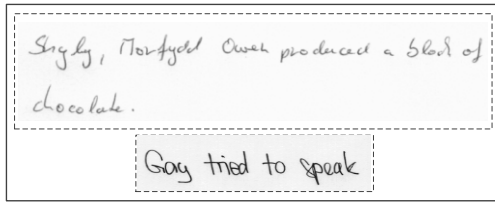 Shyly, Morfydd Owen produced a block of
chocolate.
Gay tried to speak